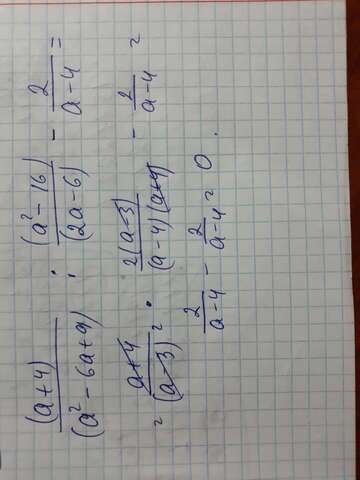 (a+4)/(a²-6a+9) : (a²-16)/(2a-6) - 2/(a-4) =
= (a+4)/(a-3)² · 2(a-3)/(a-4)(a+4) - 2/(a-4) =
2/(a-4) - 2/(a-4) = 0.